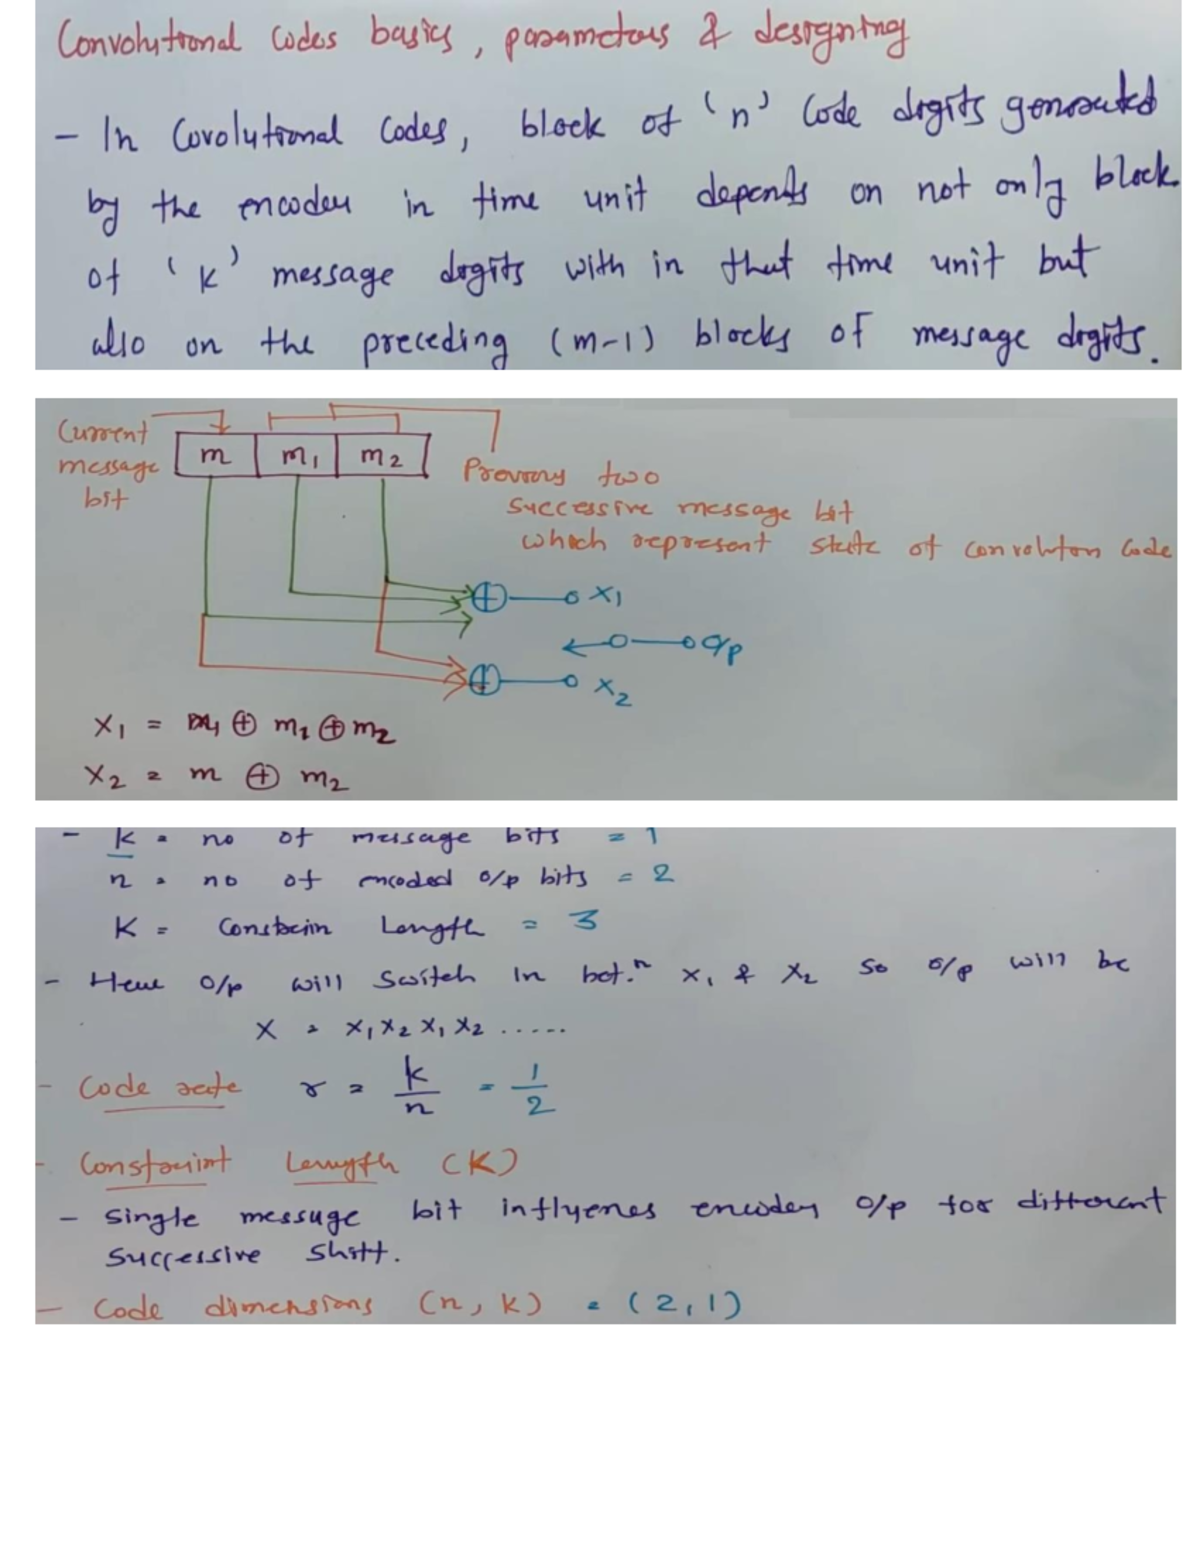 Convolutional Codes basics, parameters & designing
- In Covolutional Codes, block of 'n' Code digits generated
by the encoder in time unit depends on not only block
of 'k' message digits with in that time unit but
also on the preceding (m-1) blocks of message digits.
Current
message
bit
m m1 m2
Previous two
successive message bit
which represent state of convolution code
X1
o/p
X2
X1 = m ⊕ m1 ⊕ m2
X2 = m ⊕ m2
- k = no of message bits = 1
n = no of encoded o/p bits = 2
K = Constrain Length = 3
- Here o/p will switch in bet.n X1 & X2 so o/p will be
X = X1 X2 X1 X2 .....
- Code rate r = k/n = 1/2
- Constraint Length (K)
- Single message bit influenes encoder o/p for different
successive shift.
- Code dimensions (n, k) = (2,1)